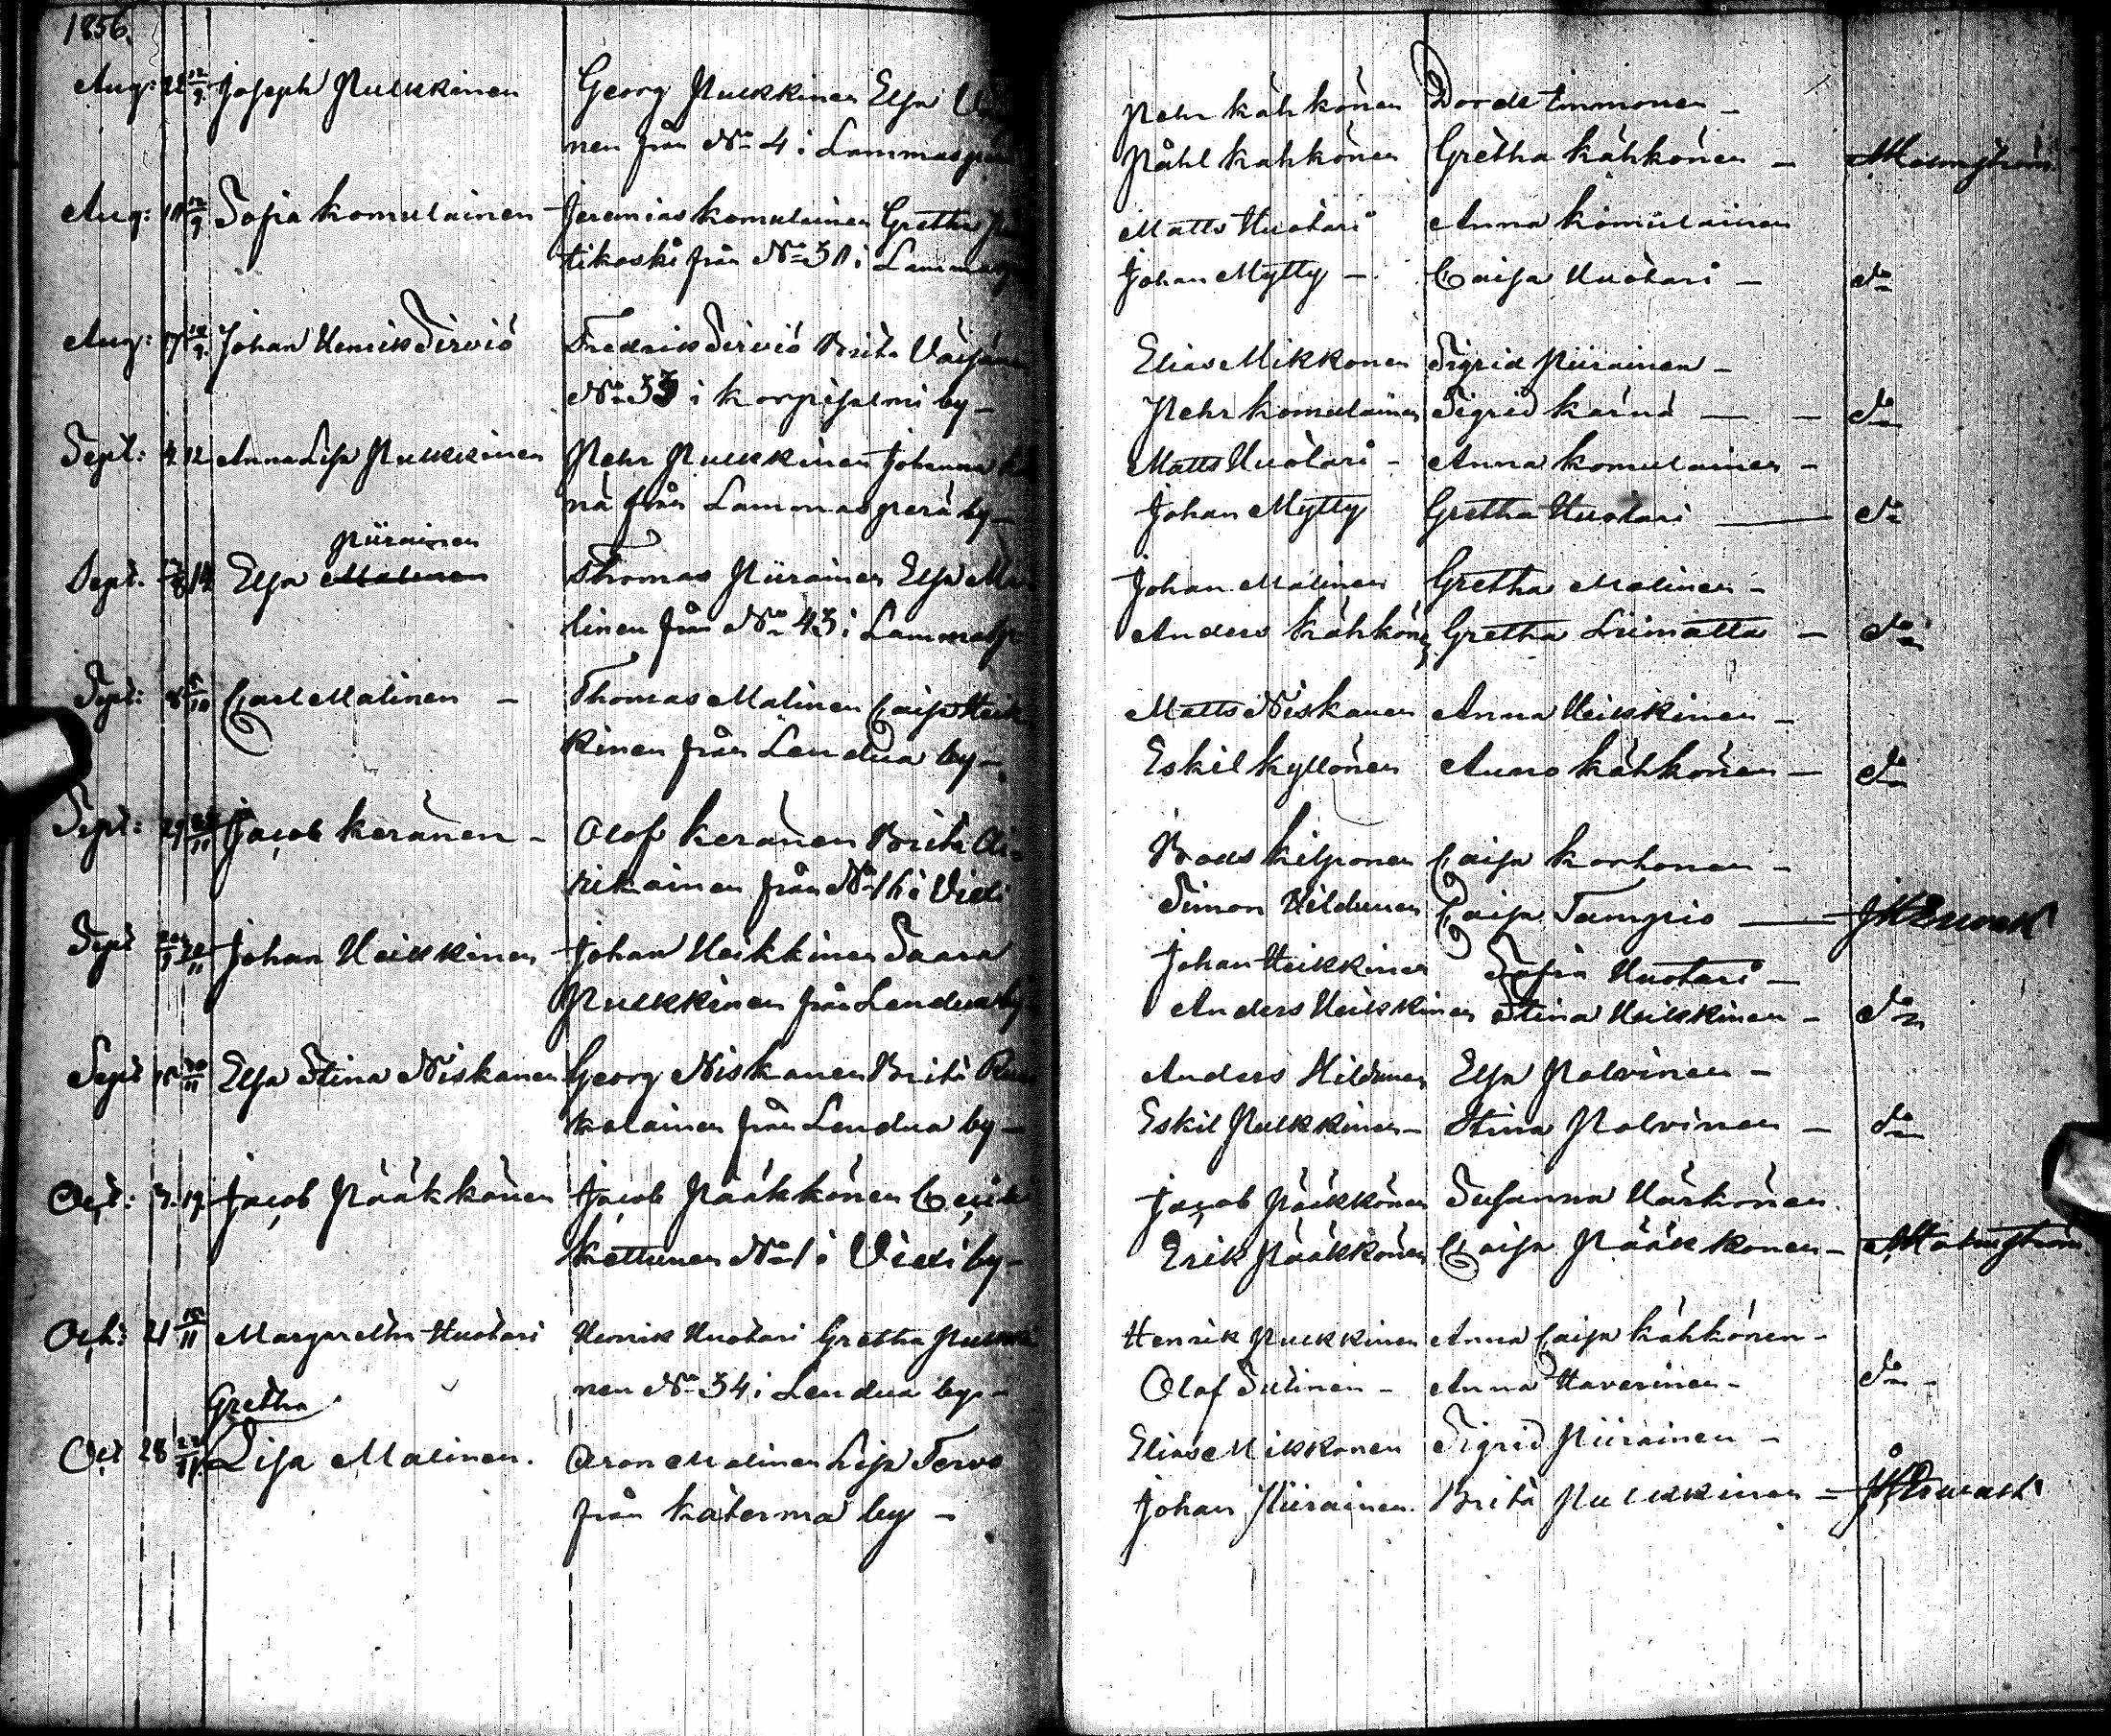 1856.
Aug: 22 12/9. Joseph Pulkkinen Georg Pulkkinen Elsa
nen från No 4 i Lammasperä
Aug: 12/9 Sofia Komulainen Jeremias Komulainen Gretha
tikoski från No 31 i Lammasp
Aug: 17 12/9. Johan Henrik Sirviö Fredrik Sirviö Brita Väisänen
No 33 i Korpisalmi by –
Sept: 4. 12 Anna Lisa Pulkkinen Pehr Pulkkinen Johanna
nä från Lammasperä by –
Piirainen
Sept. 14 Elsa Malinen Thomas Piirainen Elsa Ma
linen från No 43 i Lammasp
Sept: 8 5/10 Carl Malinen – Thomas Malinen Caisa Heik
kinen från Lendua by –
Sept: 29 Jacob Keränen – Olof Keränen Brita
rikainen från No 16 i Viexi
Sept 20/11 Johan Heikkinen Johan Heikkinen Saara
Pulkkinen från Lendua by
Sept 15 20/11 Elsa Stina Niskanen Georg Niskanen Brita
kalainen från Lendua by –
Oct: 7. 19. Jacob Pääkkönen Jacob Pääkkönen
Kettunen No 1 i Viexi by –
Oct: 21 15/11 Margaretha Huotari Henrik Huotari Gretha Pulkki
nen No 34 i Lendua by –
Gretha
Oct 28 22/11. Lisa Malinen. Aron Malinen Lisa Tervo
från Katerma by –
Pehr Kähkönen Dorde Timmonen –
Påhl Kähkönen Gretha Kähkönen – Malmström
Matts Huotari Anna Komulainen
Johan Mytty – Caisa Huotari – do
Elias Mikkonen Sigrid Piirainen –
Pehr Komulainen Sigrid Kärnä – – do
Matts Huotari – Anna Komulainen –
Johan Mytty Gretha Huotari – do
Johan Malinen Gretha Malinen –
Anders Kähkönen Gretha Liimatta – do
Matts Niskanen Anna Heikkinen –
Eskil Kyllönen Anna Kähkönen – do
Kilponen Caisa Korhonen –
Simon Hildunen Caisa Tampio –
Johan Heikkinen Sofia Huotari –
Anders Heikkinen Stina Heikkinen – do
Anders Hildunen Elsa Polvinen –
Eskil Pulkkinen – Stina Polvinen – do
Jacob Pääkkönen Susanna Härkönen.
Erik Pääkkönen Caisa Pääkkönen – Malmström
Henrik Pulkkinen Anna Caisa Kähkönen –
Olof Sutinen – Anna Haverinen – do –
Elias Mikkonen Sigrid Piirainen –
Johan Piirainen. Brita Pulkkinen –